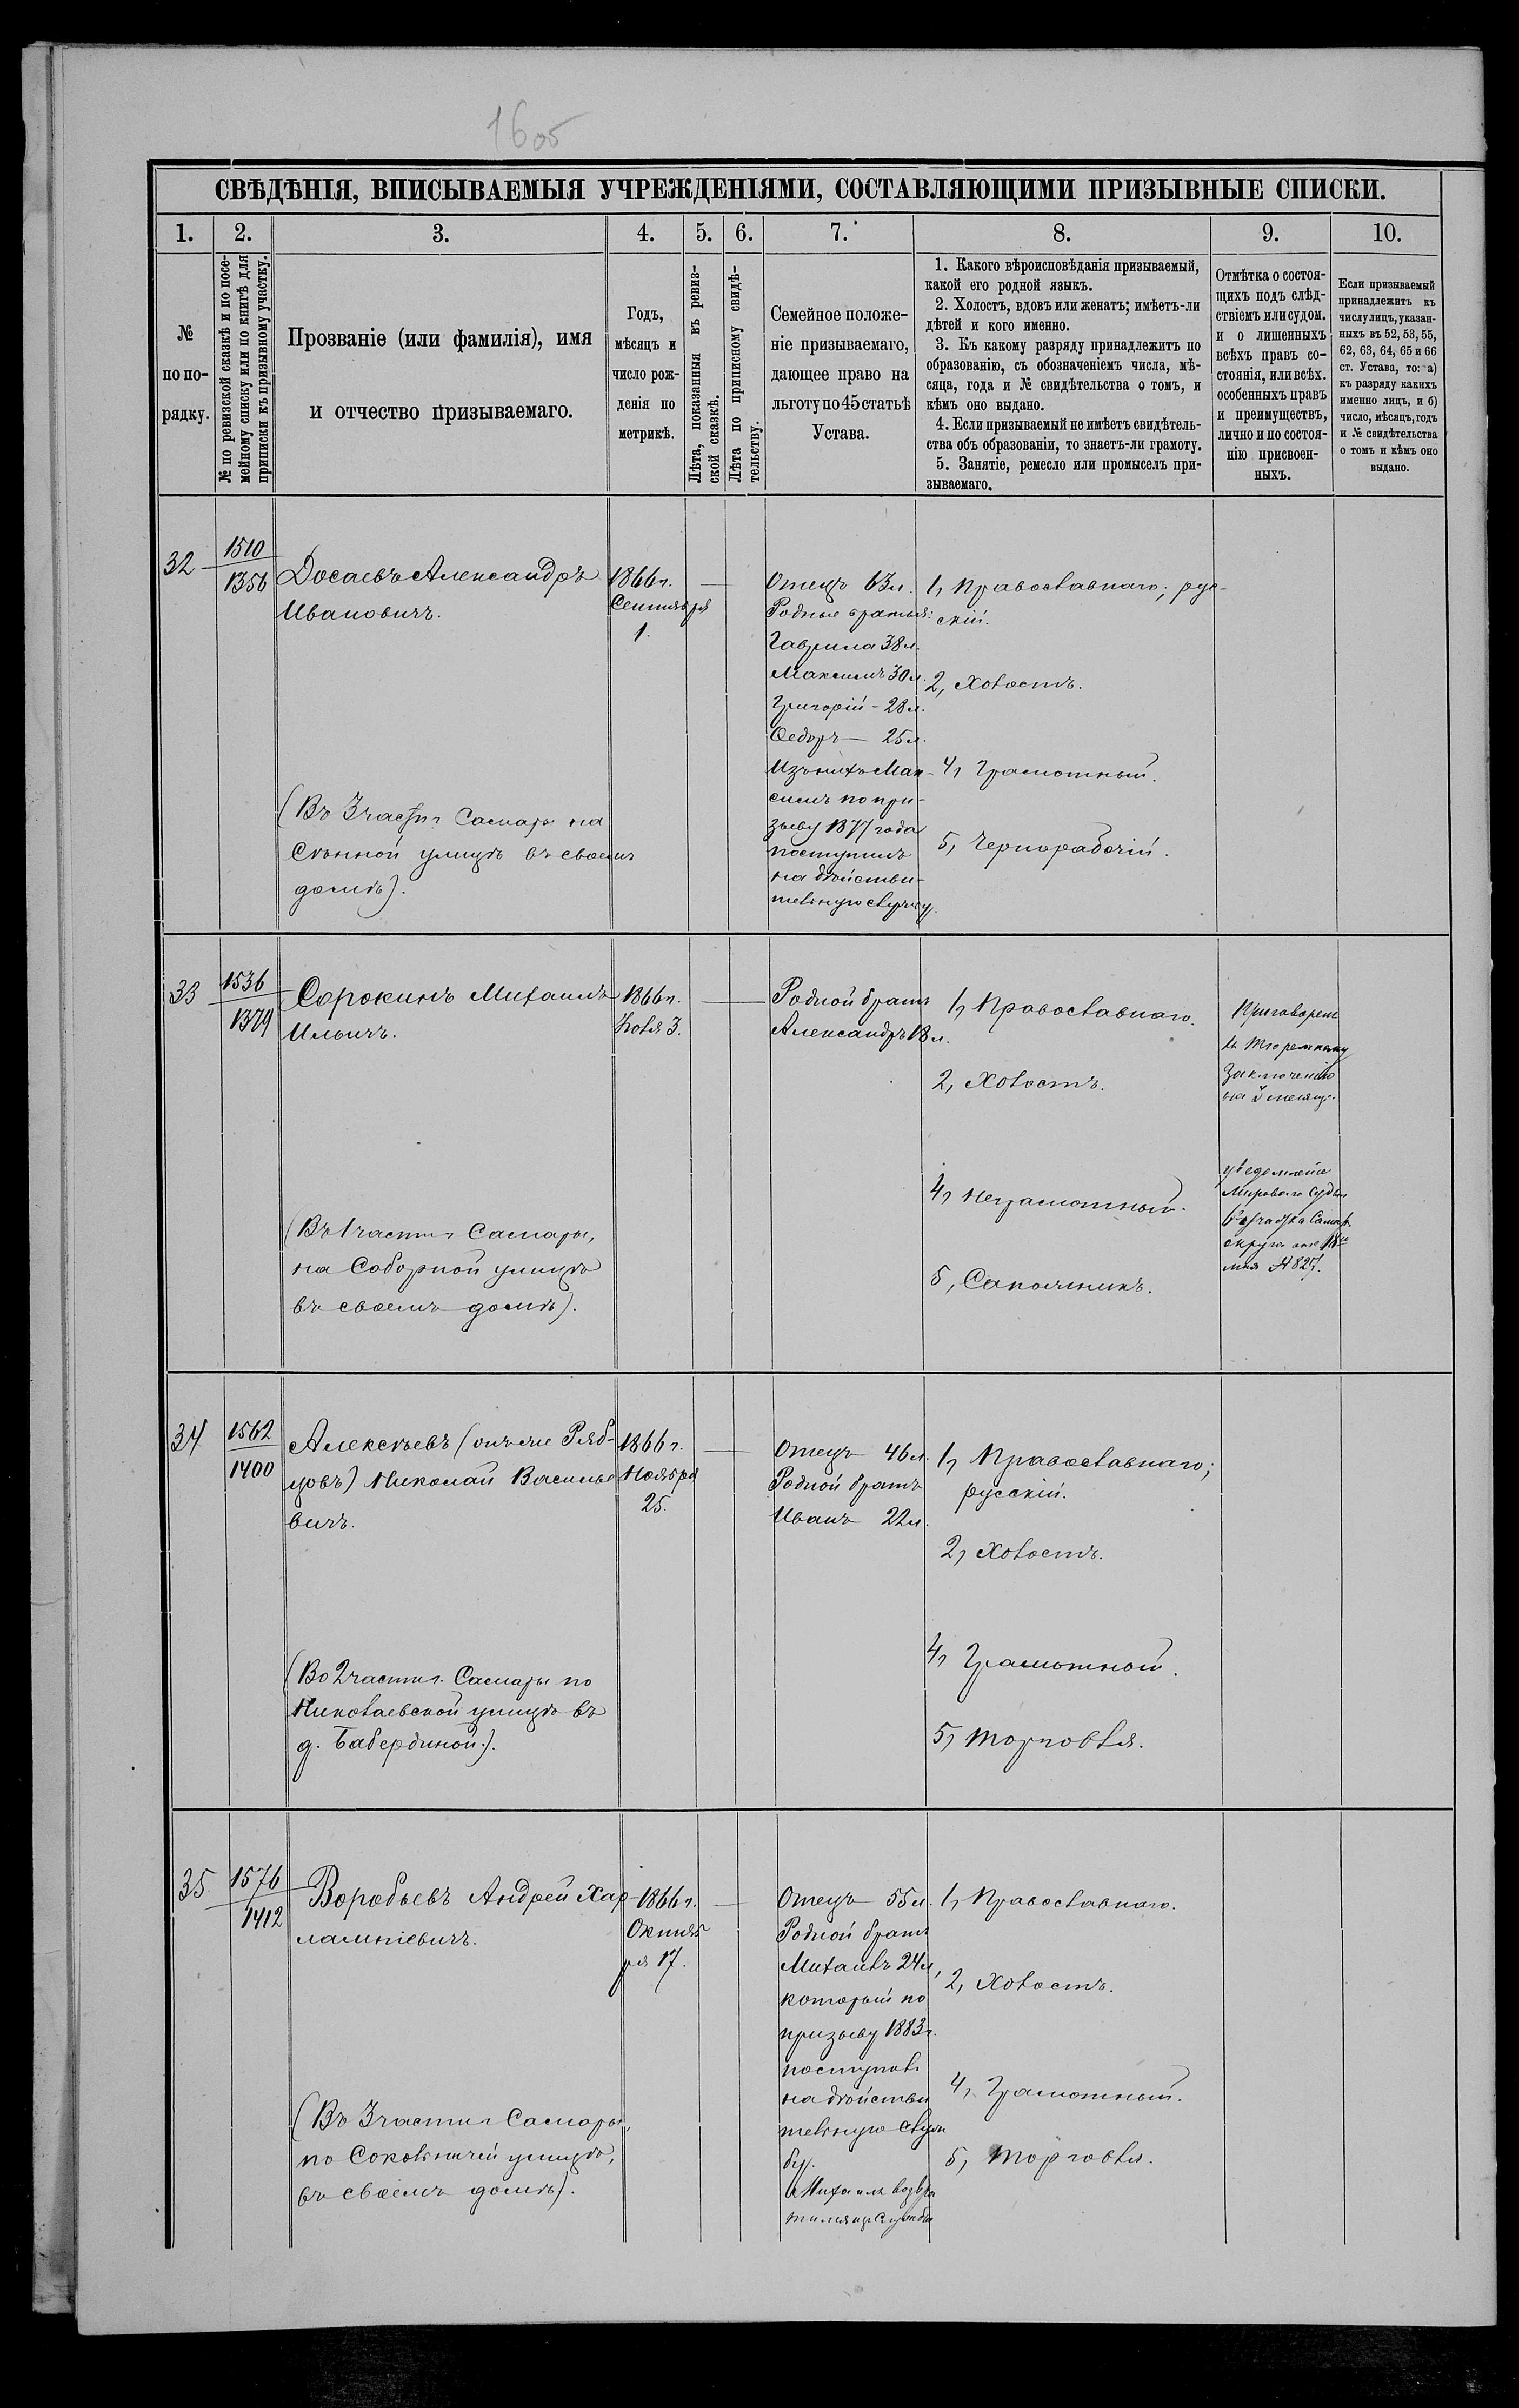 1605
СВѢДѢНІЯ, ВПИСЫВАЕМЫЯ УЧРЕЖДЕНІЯМИ, СОСТАВЛЯЮЩИМИ ПРИЗЫВНЫЕ СПИСКИ.
1. 2. 3. 4. 5. 6. 7. 8. 9. 10.
№
по по-
рядку.
№ по ревизской сказкѣ и по посе-
мейному списку или по книгѣ для
приписки къ призывному участку.
Прозваніе (или фамилія), имя
и отчество призываемаго.
Годъ,
мѣсяцъ и
число рож-
денія по
метрикѣ.
Лѣта, показанныя въ ревиз-
ской сказкѣ.
Лѣта по приписному свидѣ-
тельству.
Семейное положе-
ніе призываемаго,
дающее право на
льготу по 45 статьѣ
Устава.
1. Какого вѣроисповѣданія призываемый,
какой его родной языкъ.
2. Холостъ, вдовъ или женатъ; имѣетъ-ли
дѣтей и кого именно.
3. Къ какому разряду принадлежитъ по
образованію, съ обозначеніемъ числа, мѣ-
сяца, года и № свидѣтельства о томъ, и
кѣмъ оно выдано.
4. Если призываемый не имѣетъ свидѣтель-
ства объ образованіи, то знаетъ-ли грамоту.
5. Занятіе, ремесло или промыселъ при-
зываемаго.
Отмѣтка о состоя-
щихъ подъ слѣд-
ствіемъ или судом.
и о лишенныхъ
всѣхъ правъ со-
стоянія, или всѣх.
особенныхъ правъ
и преимуществъ,
лично и по состоя-
нію присвоен-
ныхъ.
Если призываемый
принадлежитъ къ
числу лицъ, указан-
ныхъ въ 52, 53, 55,
62, 63, 64, 65 и 66
ст. Устава, то: а)
къ разряду какихъ
именно лицъ, и б)
число, мѣсяцъ, годъ
и № свидѣтельства
о томъ и кѣмъ оно
выдано.
32
1510
1356
Досаевъ Александръ
Ивановичъ.
(Въ 3 части Самары на
Сѣнной улицѣ въ своемъ
домѣ).
1866 г.
Сентября
1.
Отецъ 63 л.
Родные братья:
Гаврила 38 л.
Максимъ 30 л.
Григорій - 28 л.
Ѳедоръ — 25 л.
Изъ нихъ Мак-
симъ по при-
зыву 1877 года
поступилъ
на дѣйстви-
тельную службу.
1, Православнаго; рус-
скій.
2, Холостъ.
4, Грамотный.
5, Чернорабочій.
33
1536
1379
Сорокинъ Михаилъ
Ильичъ.
(Въ 1 части Самары,
на Соборной улицѣ
въ своемъ домѣ).
1866 г.
Ноября 3.
Родной братъ
Александръ 18 л.
1, Православнаго.
2, Холостъ.
4, Неграмотный.
5, Сапожникъ.
Приговорен
къ тюремному
заключенію
на 3 месяца
уведомленіе
Мирового Судьи
6 участка Самар.
округа от 18го
мая № 827.
34
1562
1400
Алексѣевъ (онъ же Ряб-
цовъ) Николай Василье
вичъ.
(Во 2 части Самары по
Николаевской улицѣ въ
д. Бабердиной).
1866 г.
Ноября
25.
Отецъ 46 л.
Родной братъ
Иванъ 22 л.
1, Православнаго;
русскій.
2, Холостъ.
4, Грамотной.
5, Торговля.
35
1576
1412
Воробьевъ Андрей Хар-
лампіевичъ.
(Въ 3 части Самары,
по Сокольничей улицѣ,
въ своемъ домѣ).
1866 г.
Октяб
ря 17.
Отецъ — 55 л.
Родной братъ
Михаилъ 24 л,
который по
призыву 1883 г.
поступилъ
на дѣйстви
тельную служ
бу.
Михаилъ возвра
тился из службы
1, Православнаго.
2, Холостъ.
4, Грамотный.
5, Торговля.